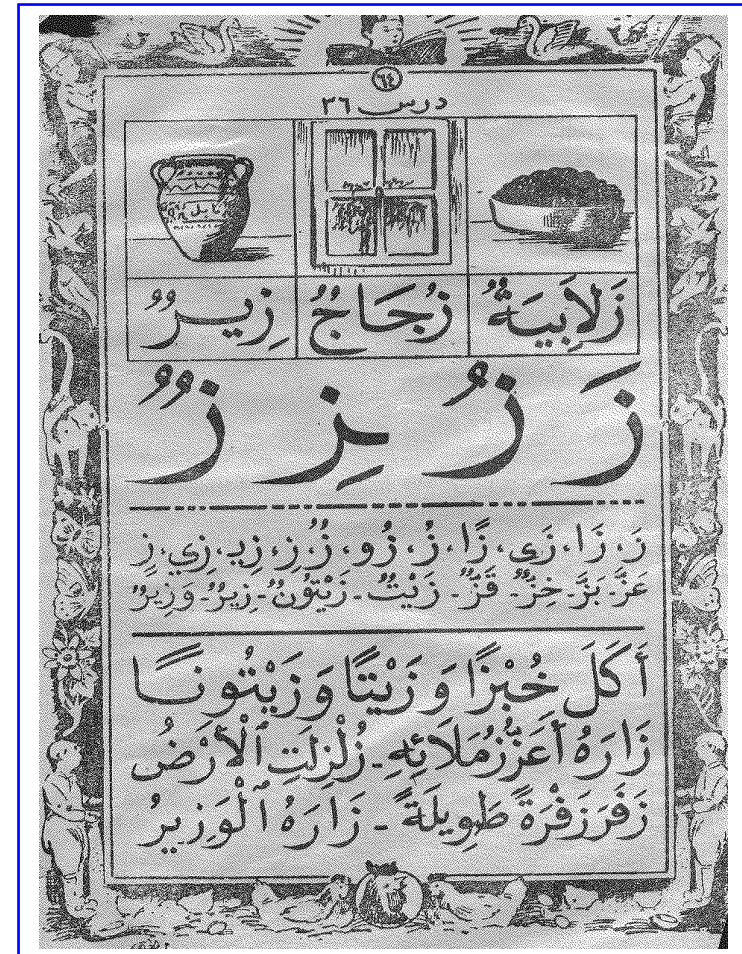 ٦٤
درس ٣٦
زَلَابِيَةٌ زُجَاجٌ زِيرٌ
زَ زُ زِ زٌ
زَ، زَا، زَى، زًا، زُ، زُو، زٌ، زِ، زِيـ، زِي، زٍ
عَزَّ - بَزَّ - خِزٌّ - قَزٌّ - زَيْتٌ - زَيْتُونٌ - زِيرٌ - وَزِيرٌ
أَكَلَ خُبْزًا وَ زَيْتًا وَ زَيْتُونًـا
زَارَهُ أَعَزُّ زُمَلَائِهِ - زُلْزِلَتِ ٱلْأَرْضُ
زَفَرَ زَفْرَةً طَوِيلَةً - زَارَهُ ٱلْوَزِيرُ